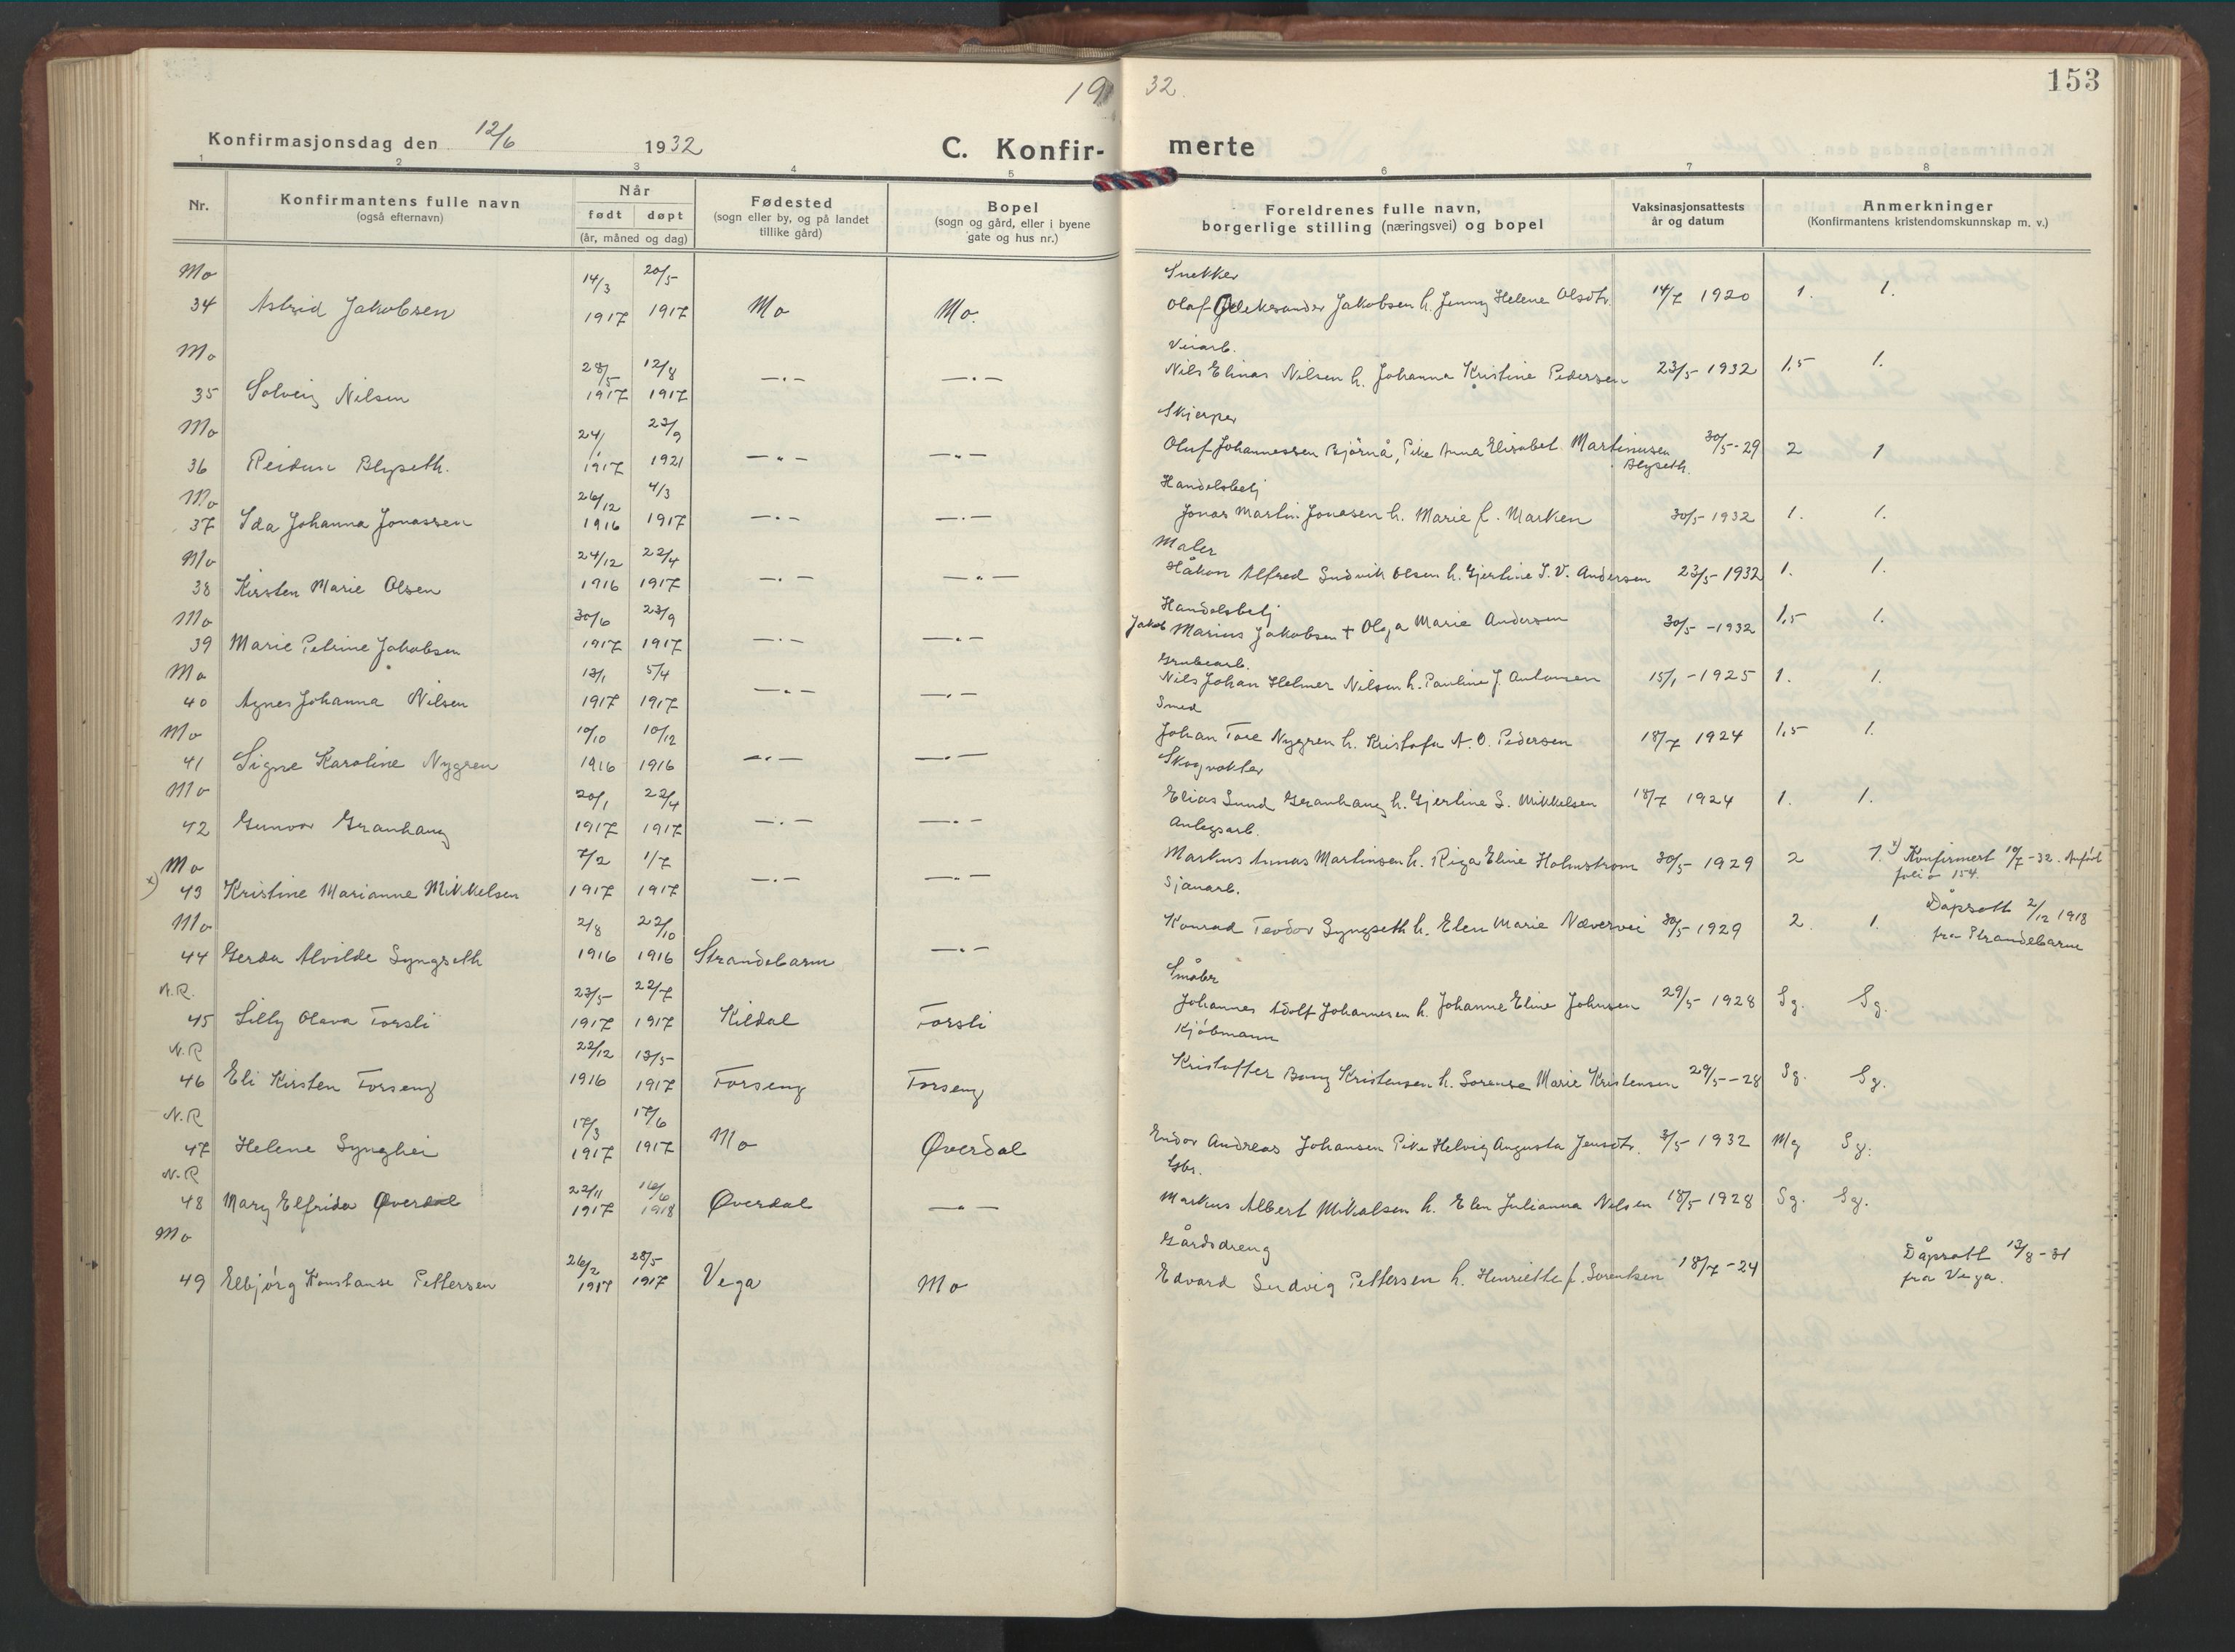 19 32. 153
Konfirmasjonsdag den 12/6 1932 C. Konfir- merte
1 2 3 4 5 6 7 8
Nr. Konfirmantens fulle navn (også efternavn) Når født døpt (år, måned og dag) Fødested (sogn eller by, og på landet tillike gård) Bopel (sogn og gård, eller i byene gate og hus nr.) Foreldrenes fulle navn, borgerlige stilling (næringsvei) og bopel Vaksinasjonsattests år og datum Anmerkninger (Konfirmantens kristendomskunnskap m. v.)
Mo 14/3 20/5 Snekker
34 Astrid Jakobsen 1917 1917 Mo Mo. Olaf Aleksander Jakobsen h. Jenny Helene Olsdtr. 14/7 1920 1. 1.
Mo 28/5 12/8 Veiarb.
35 Solveig Nilsen 1917 1917 —„— —„— Nils Elinas Nilsen h. Johanna Kristine Pedersen 23/5 1932 1,5 1.
Mo 24/1 23/9 Skjerper
36 Reidun Blyseth. 1917 1921 —„— —„— Oluf Johannessen Bjørnå, Pike Anna Elisabet Martinusen Blyseth. 30/5-29 2 1
Mo 26/12 4/3 Handelsbetj
37 Ida Johanna Jonassen 1916 1917 —„— —„— Jonas Martin Jonasen h. Marie f. Marken 30/5 1932 1. 1.
Mo 24/12 22/4 Maler
38 Kirsten Marie Olsen 1916 1917 —„— —„— Håkon Alfred Ludvik Olsen h. Gjertine J. V. Andersen 23/5-1932 1. 1.
Mo 30/6 23/9 Handelsbetj
39 Marie Petrine Jakobsen 1917 1917 —„— —„— Jakob Marius Jakobsen + Olga Marie Andersen 30/5-1932 1,5 1.
Mo 13/1 5/4 Grubearb.
40 Agnes Johanna Nilsen 1917 1917 —„— —„— Nils Johan Helmer Nilsen h. Pauline J. Antonsen 15/1-1925 1. 1.
Mo 10/10 10/12 Smed
41 Signe Karoline Nygren 1916 1916 —„— —„— Johan Tore Nygren h. Kristofa A. O. Pedersen 18/7 1924 1,5 1.
Mo 20/1 22/4 Skogvokter
42 Gunvor Granhaug 1917 1917 —„— —„— Elias Lund Granhaug h. Gjertine S. Mikkelsen 18/7 1924 1. 1.
Mo 7/2 1/7 Anlegsarb.
x) 43 Kristine Marianne Mikkelsen 1917 1917 —„— —„— Markus Annas Martinsen h. Riga Eline Holmstrøm 30/5-1929 2 1. x) Konfirmert 10/7-32. Anført folio 154.
Mo 2/8 22/10 Sjauarb.
44 Gerda Alvilde Lyngseth 1916 1916 Strandebarm —„— Konrad Teodor Lyngseth h. Elen Marie Nævervei 30/5-1929 2. 1. Dåpsatt 2/12 1918 fra Strandebarm
N.R. 23/5 22/7 Småbr
45 Lilly Olava Forsli 1917 1917 Kildal Forsli Johannes Adolf Johannesen h. Johanne Eline Johnsen 29/5-1928 Sg. Sg.
N.R 22/12 13/5 Kjøbmann
46 Eli Kirsten Forseng 1916 1917 Forseng Forseng Kristoffer Bang Kristensen h. Sorense Marie Kristensen 29/5-28 Sg. Sg.
N.R 17/3 17/6
47 Helene Lynghei 1917 1917 Mo Øverdal Endor Andreas Johansen Pike Helvig Augusta Jensdtr. 3/5-1932 Mg Sg.
N.R 22/11 16/6 Gbr.
48 Mary Elfrida Øverdal 1917 1918 Øverdal —„— Markus Albert Mikalsen h. Elen Julianna Nilsen 18/5-1928 Sg. Sg.
Mo 26/2 28/5 Gårdsdreng
49 Elbjørg Konstanse Pettersen 1917 1917 Vega Mo Edvard Ludvig Pettersen h. Henriette f. Sorentsen 18/7-24 Dåpsatt 13/8-31 fra Vega.